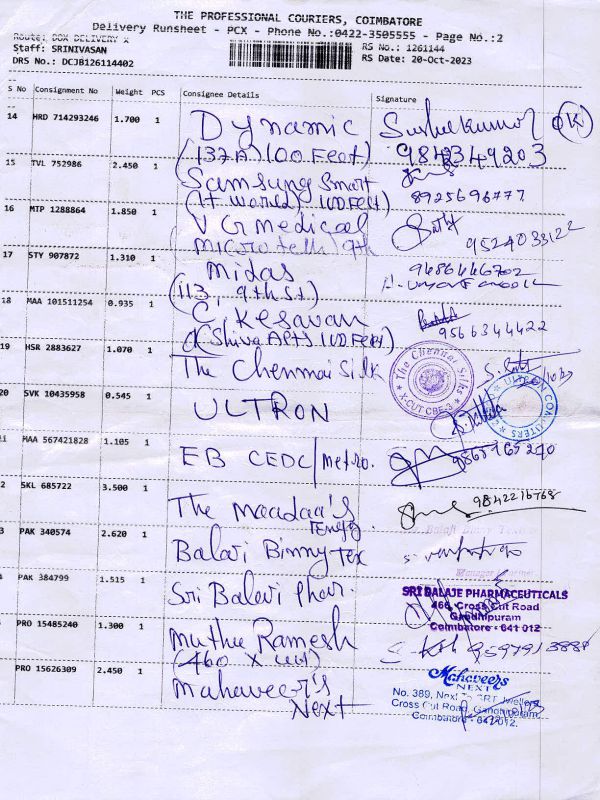 THE PROFESSIONAL COURIERS, COIMBATORE
Delivery Runsheet - PCX - Phone No.:0422-3505555 - Page No.:2
Route: DOX DELIVERY X
RS No.: 1261144
Staff: SRINIVASAN
RS Date: 20-Oct-2023
DRS No.: DCJB126114402
S No Consignment No Weight PCS Consignee Details Signature
14 HRD 714293246 1.700 1 Dynamic Sushilkumar OK
(137A) 100 Feet) 9842349203
15 TVL 752986 2.450 1 Samsung Smart
(It world) 100 Feet) 8925696777
16 MTP 1288864 1.850 1 V G medical
9th 9524033122
17 STY 907872 1.310 1 Midas 9486446702
(113, 9th St)
18 MAA 101511254 0.935 1 C. Kesavan
(Shiva APTS 100 Feet) 9566344422
19 HSR 2883627 1.070 1 The Chennai Silk
The Chennai Silks
X-CUT CBE-3
20 SVK 10435958 0.545 1 ULTRON
ULTRON COMPUTERS
MAA 567421828 1.105 1 EB CEDC/Metro.
2 SKL 685722 3.500 1 The Maadaa's 9842216768
3 PAK 340574 2.620 1 Balaji Bimmy Tex
PAK 384799 1.515 1 Sri Balaji Phar.
SRI BALAJE PHARMACEUTICALS
466, Cross Cut Road
Gandhipuram
Coimbatore - 641 012
PRO 15485240 1.300 1 Muthu Ramesh
(460 X cut)
PRO 15626309 2.450 1 Mahaveer's
Next
Mahaveers
NEXT
No. 389, Next To GRT Jwellers
Cross Cut Road, Gandhipuram,
Coimbatore - 641 012.